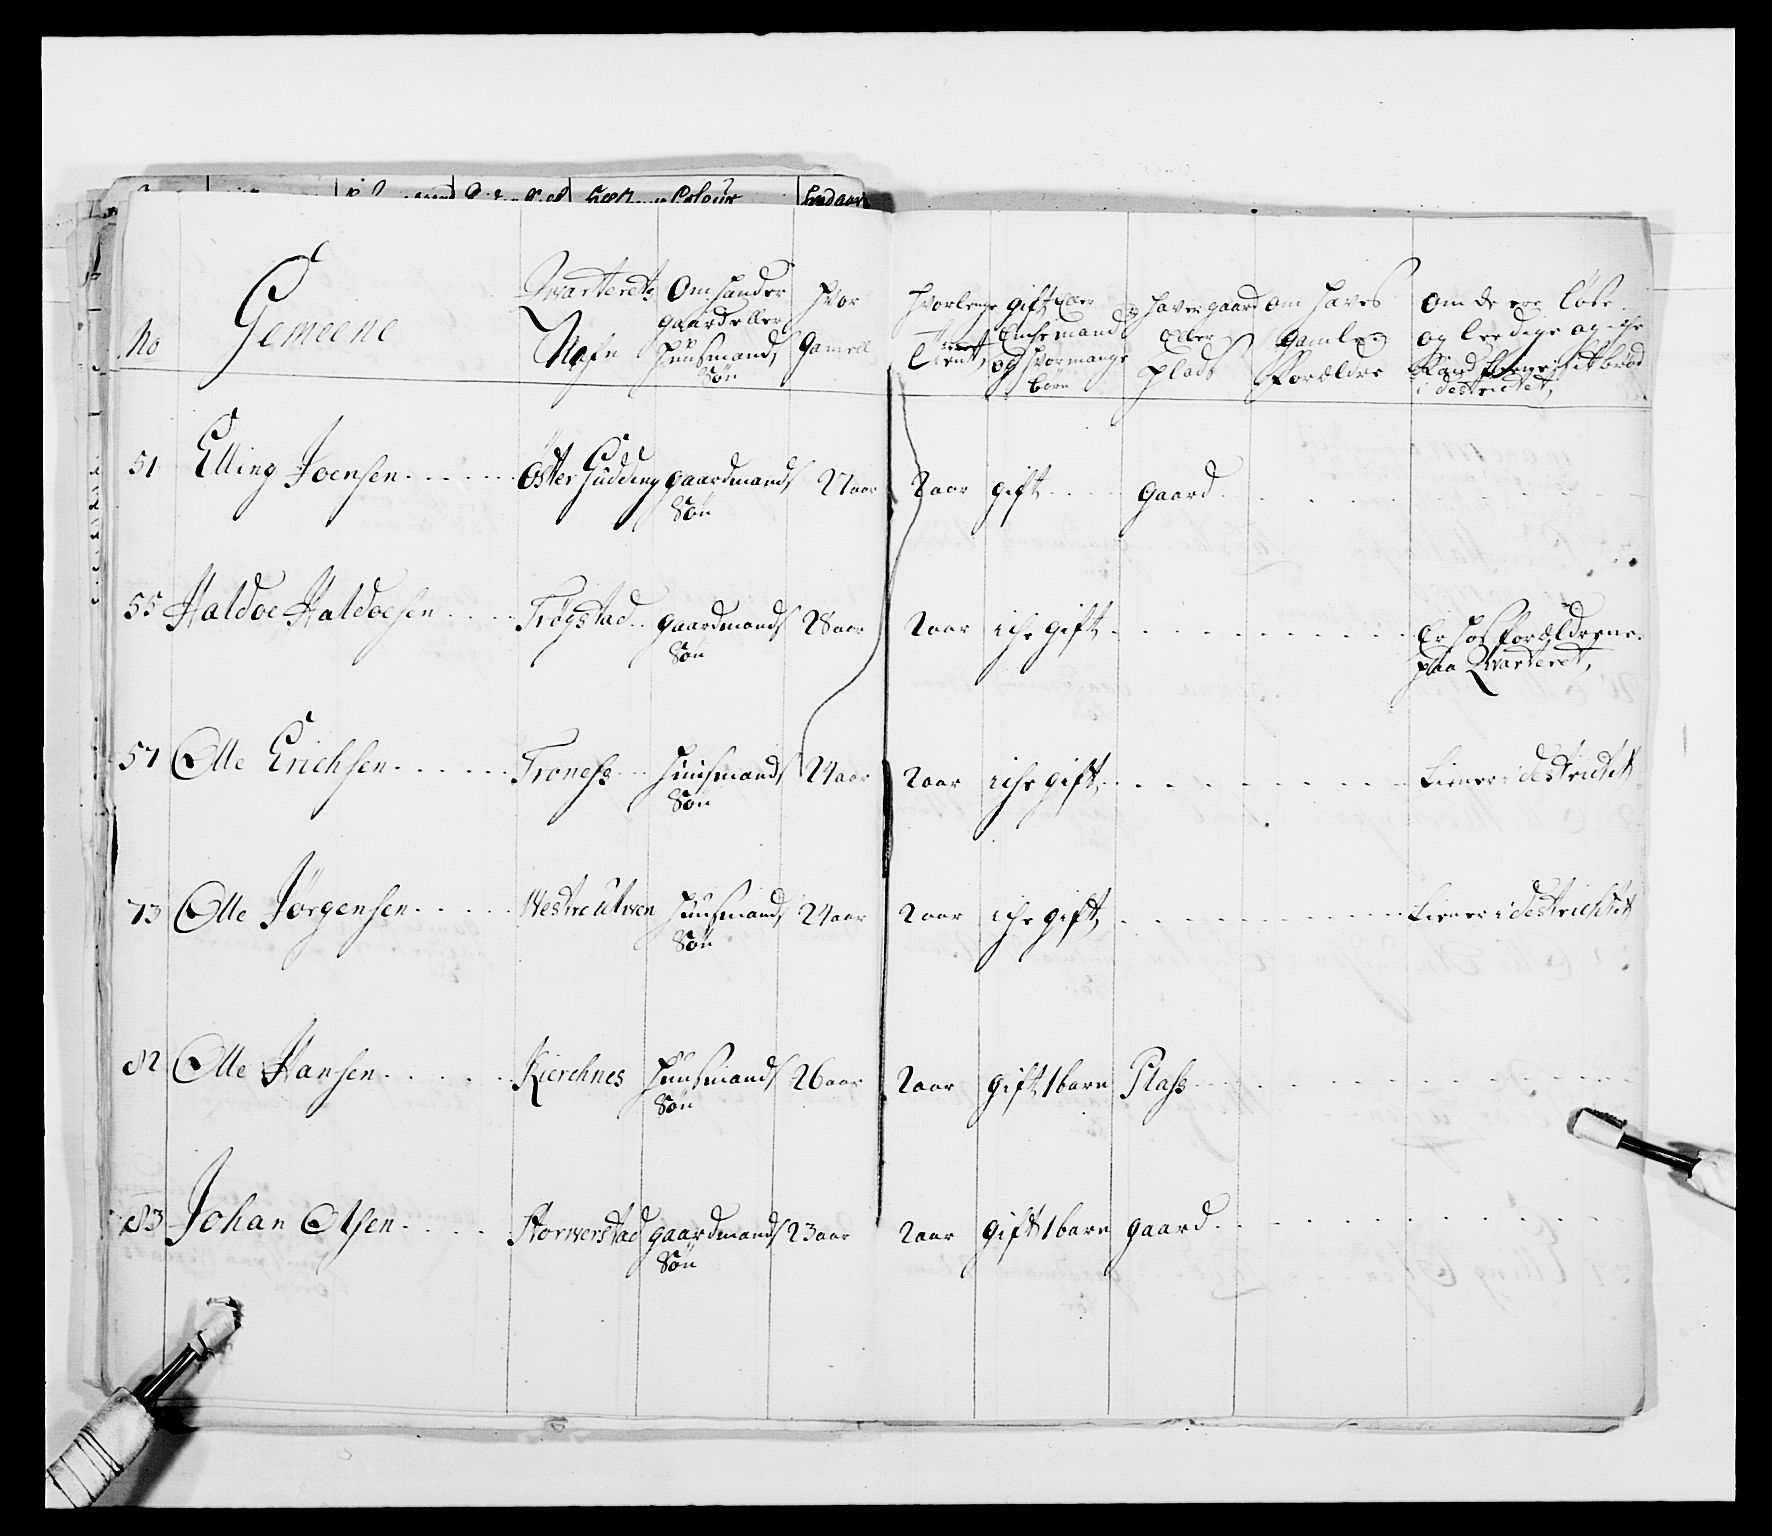 No
Gemeene
Qvarterets Nafn
Om hand er gaard eller huusmands Søn
hvor gamell
hvorlenge tient
gift eller Enchemand og hvormange børn
haver gaard Eller plads
om haves gamle Forældre
om de ere løse og leedige og iche
i destrictet,
51 Elling Joensen Öster Gudding gaardmands Søn 27 aar 2 aar gift gaard
55 Haldoe Haldoesen Frøgstad gaardmands Søn 28 aar 2 aar iche gift Er hos forældrene paa Qvarteret,
57 Olle Erichsen Troness huusmands Søn 24 aar 2 aar iche gift tiener i destrictet
73 Olle Jørgensen Westre Utwen huusmands Søn 24 aar 2 aar iche gift tiener i destrichtet
82 Olle Hansen Kierchnes huusmands Søn 26 aar 2 aar gift 1 barn Plass
83 Johan Olsen Storwerstad gaardmands Søn 23 aar 2 aar gift 1 barn gaard